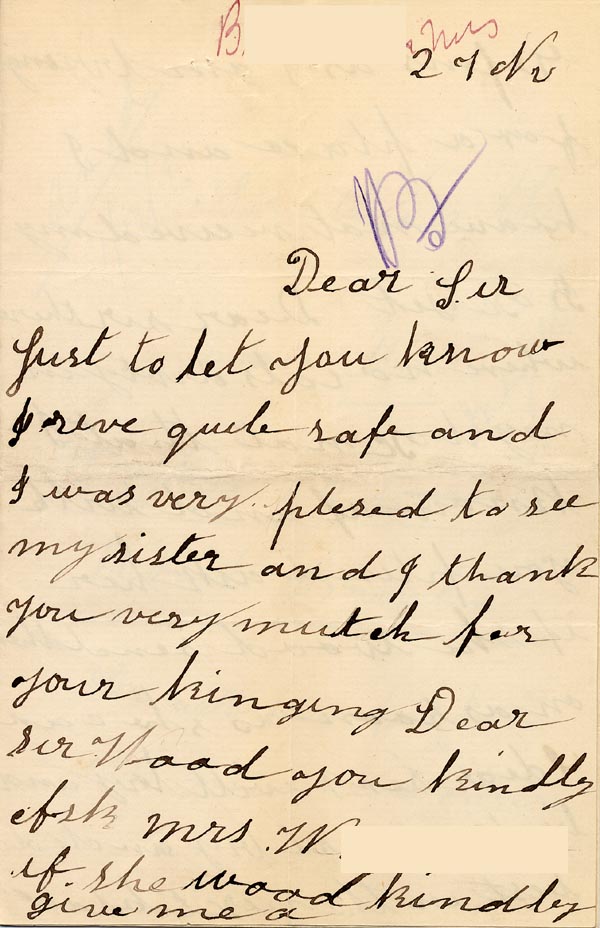 B
27 Nv
Dear Sir
Just to let you know
I reve quite safe and
I was very plesed to see
my sister and I thank
you very mutch for
your kinging Dear
sir Wood you kindly
Mrs. W.
if she wood kindly
give me a